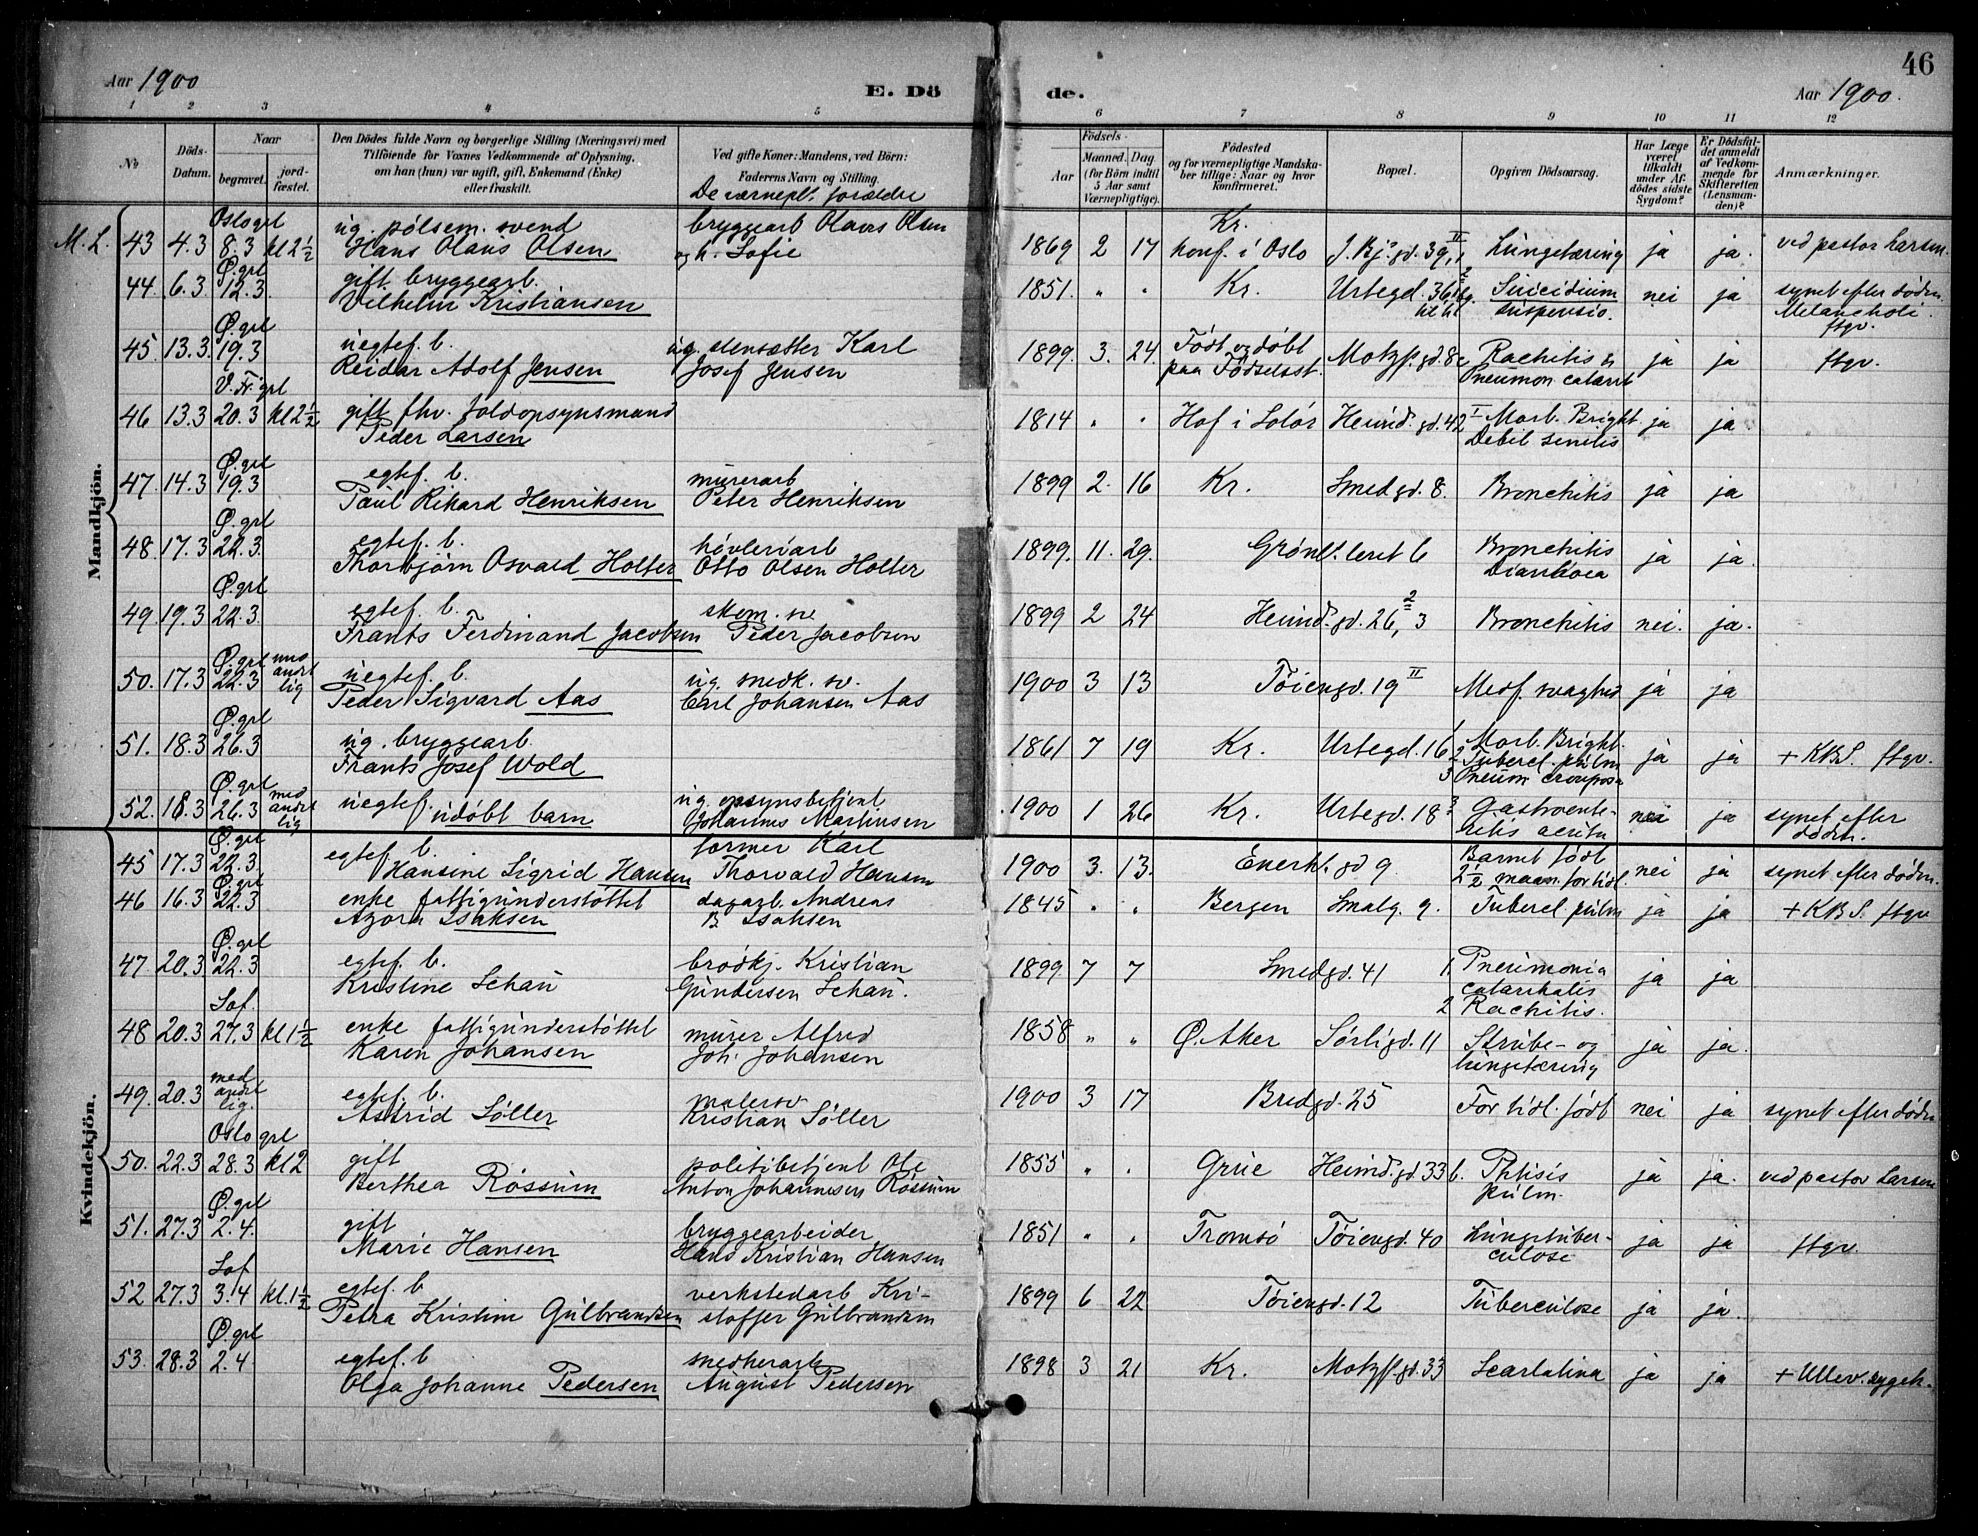 46
Aar 1900
E. Dö
de.
Aar 1900.
1 2 3 4 5 6 7 8 9 10 11 12
No
Döds-Datum.
Naar
begravet.
jord-fæstet.
Den Dödes fulde Navn og borgerlige Stilling (Næringsvei) med
Tilföiende for Voxnes Vedkommende af Oplysning,
om han (hun) var ugift, gift, Enkemand (Enke)
eller fraskilt.
Ved gifte Koner: Mandens, ved Börn:
Faderens Navn og Stilling.
De værnepl. forældre
Födsels-
Aar
Maaned. Dag
(for Börn indtil
5 Aar samt
Værnepligtige).
Födested
og for værnepligtige Mandska-
ber tillige: Naar og hvor
konfirmeret.
Bopæl.
Opgiven Dödsaarsag.
Har Læge
været
tilkaldt
under Af-
dödes sidste
Sygdom?
Er Dödsfal-
det anmeldt
af Vedkom-
mende for
Skifteretten
(Lensman-
den)?
Anmærkninger.
Mandkjön.
M.L. 43 4.3 Oslo grl 8.3 kl 2½ ug. pölsem. svend bryggearb Olaus Olsen Kr. 1869 2 17 konf. i Oslo J. Bj. gd. 39, II 1 Lungetæring ja ja. ved pastor Larsen.
Hans Olaus Olsen og h. Sofie
44. 6.3 Ø. grl 12.3 gift bryggearb. 1851. " " Kr. Urtegd. 36 Suicidium nei ja synet efter döden.
Vilhelm Kristiansen suspensio. Melancholi.
ftgv.
45 13.3. Ø. grl 19.3 uegtef. b. ug. stensætter Karl 1899. 3. 24. Födt og döbt Motzf. gd. 8c Rachitis & ja ja ftgv.
Reidar Adolf Jensen Josef Jensen paa Födselsst. Pneumon catarrh
46 13.3 V. Fr. grl 20.3 kl 2½ gift fhv. toldopsynsmand 1814 " " Hof i Solör Heimd. gd. 42 I Morb. Bright. ja ja
Peder Larsen Debil senilis
47. 14.3 Ø. grl 19.3 egtef. b. murerarb 1899 2. 16 Kr. Smedgd. 8. Bronchitis ja ja
Paul Rikard Henriksen Peter Henriksen
48. 17.3 Ø. grl 22.3. egtef. b. hövleriarb 1899. 11. 29. Grönl. leret 6 Bronchitis ja ja.
Thorbjörn Osvald Holter Otto Olsen Holter Diarrhoea
49. 19.3 Ø. grl 22.3. egtef. b. skom. sv 1899 2 24 Heimd. gd. 26, 2 3 Bronchitis nei. ja.
Frants Ferdinand Jacobsen Peder Jacobsen
50. 17.3 Ø. grl 22.3 med andet lig uegtef. b. ug. snedk. sv. 1900 3 13 Töiengd. 19 II Medf. svaghed ja ja
Peder Sigvard Aas Carl Johansen Aas
51. 18.3 Ø. grl 26.3 ug. bryggearb. 1861 7 19 Kr. Urtegd. 16 1 Morb. Bright. ja ja + KBS. ftgv.
Frants Josef Wold 2 Tubercl. pulm
3 Pneum crouposa
52. 18.3 Ø. grl 26.3 med andet lig uegtef. udöbt barn ug. opsynsbetjent 1900 1 26 Kr. Urtegd. 18 3 Gastroente- nei ja synet efter
Johannes Martinsen ritis acuta döden.
Kvindekjön.
45 17.3 Ø. grl 22.3. egtef. b. former Karl 1900 3. 13. Enerh. gd 9 Barnet födt nei ja synet efter döden.
Hansine Sigrid Hansen Thorvald Hansen 2½ maan. for tidl.
46 16.3 Ø. grl 22.3 enke fattigunderstöttet dagarb. Andreas 1845 " " Bergen Smalg. 9. Tubercl. pulm ja ja + KBS. ftgv
Azora Isaksen B Isaksen
47 20.3 Ø. grl 22.3 egtef. b. brödkj. Kristian 1899 7 7 Smedgd. 41 1. Pneumonia ja ja
Kristine Schau Gundersen Schau. catarrhalis
2 Rachitis.
48 20.3 Sof. 27.3 kl 1½ enke fattigunderstöttet murer Alfred 1858 " " Ø. Aker Sörligd. 11 Strube- og ja ja.
Karen Johansen Joh. Johansen lungetæring
49. 20.3 med andet lig. egtef. b. malersv 1900 3 17 Bredgd. 25 For tidl. födt nei ja synet efter döden
Astrid Söller Kristian Söller
50. 22.3 Oslo grl 28.3 kl 2 gift politibetjent Ole 1855 " " Grue Heimd. gd. 33 b. Phtisis ja ja. ved pastor Larsen
Berthea Rössum Anton Johannesen Rössum pulm.
51. 27.3 Ø. grl 2.4. gift bryggearbeider 1851 " " Tromsö Töiengd. 40 Lungetuber- ja ja ftgv.
Marie Hansen Hans Kristian Hansen culose
52 27.3 Sof 3.4 kl. 1½ egtef. b verkstedarb Kri- 1899 6 22 Töiengd. 12 Tuberculose ja ja.
Petra Kristine Gulbrandsen stoffer Gulbrandsen
53. 28.3 Ø. grl 2.4. egtef. b snedkerarb 1898 3 21 Kr. Motzf. gd. 33 Scarlatina ja ja + Ullev. sygeh.
Olga Johanne Pedersen August Pedersen